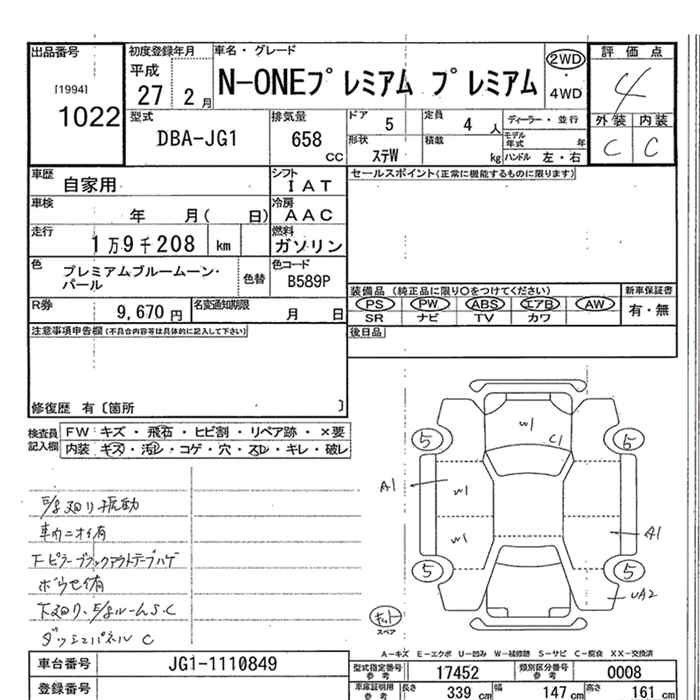 出品番号 初度登録年月 車名・グレード 評価点
[1994] 1022
平成 27 2月
N-ONEプレミアム プレミアム
2WD・4WD
4
型式 排気量 ドア 5 定員 4人 ディーラー・並行 外装 内装
DBA-JG1 658 CC 形状 ステW 積載 kg モデル年式 年 C C
ハンドル 左・右
車歴 自家用 シフト IAT セールスポイント(正常に機能するものに限ります)
車検 年 月( 日) 冷房 AAC
走行 1万9千208 km 燃料 ガソリン
色 プレミアムブルームーン・パール 色替 色コード B589P
装備品 (純正品に限り○をつけてください) 新車保証書
PS PW ABS エアB AW 有・無
SR ナビ TV カワ
R券 9,670円 名変通知期限 月 日
注意事項申告欄(不具合内容等は具体的に記入して下さい) 後日品
修復歴 有〔箇所 〕
検査員記入欄 FW キズ・飛石・ヒビ割・リペア跡・×要
内装 キズ・汚レ・コゲ・穴・スレ・キレ・破レ
車内ニオイ有
ダッシュパネル C
W1
C1
5
5
A1
W1
W1
A1
5
5
UA2
キット
スペア
A-キズ E-エクボ U-凹み W-補修跡 S-サビ C-腐食 XX-交換済
車台番号 JG1-1110849 型式指定番号 参考 17452 類別区分番号 参考 0008
登録番号 車庫証明用 参考 長さ 339 cm 幅 147 cm 高さ 161 cm